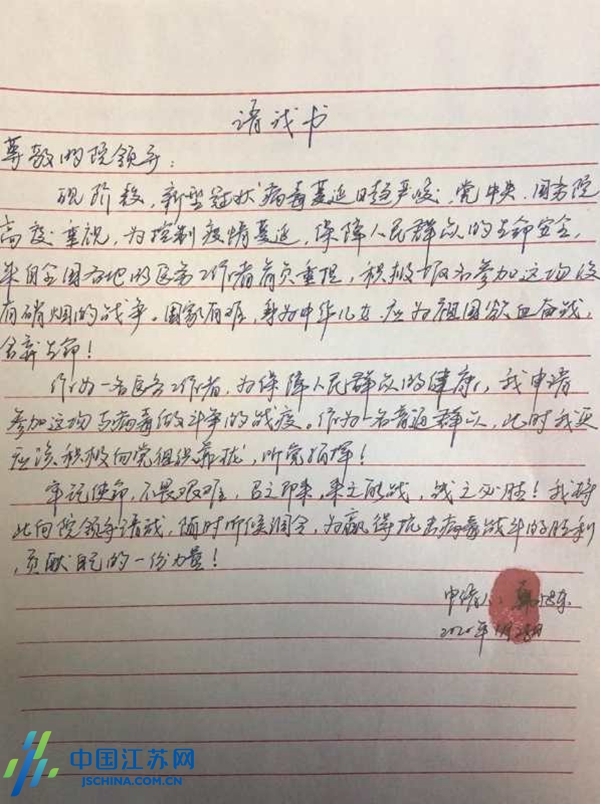 请战书
尊敬的院领导：
现阶段，新型冠状病毒蔓延日趋严峻，党中央、国务院
高度重视，为控制疫情蔓延，保障人民群众的生命安全，
来自全国各地的医务工作者肩负重担，积极报名参加这场没
有硝烟的战争。国家有难，身为中华儿女，应为祖国欲血奋战，
舍弃生命！
作为一名医务工作者，为保障人民群众的健康，我申请
参加这场与病毒做斗争的战疫。作为一名普通群众，此时我更
应该积极向党组织靠拢，听党指挥！
牢记使命，不畏艰难，召之即来，来之能战，战之必胜！我特
此向院领导请战，随时听候调令，为赢得抗击病毒战斗的胜利
，贡献自己的一份力量！
申请人：东
2020年1月28日
中国江苏网
JSCHINA.COM.CN